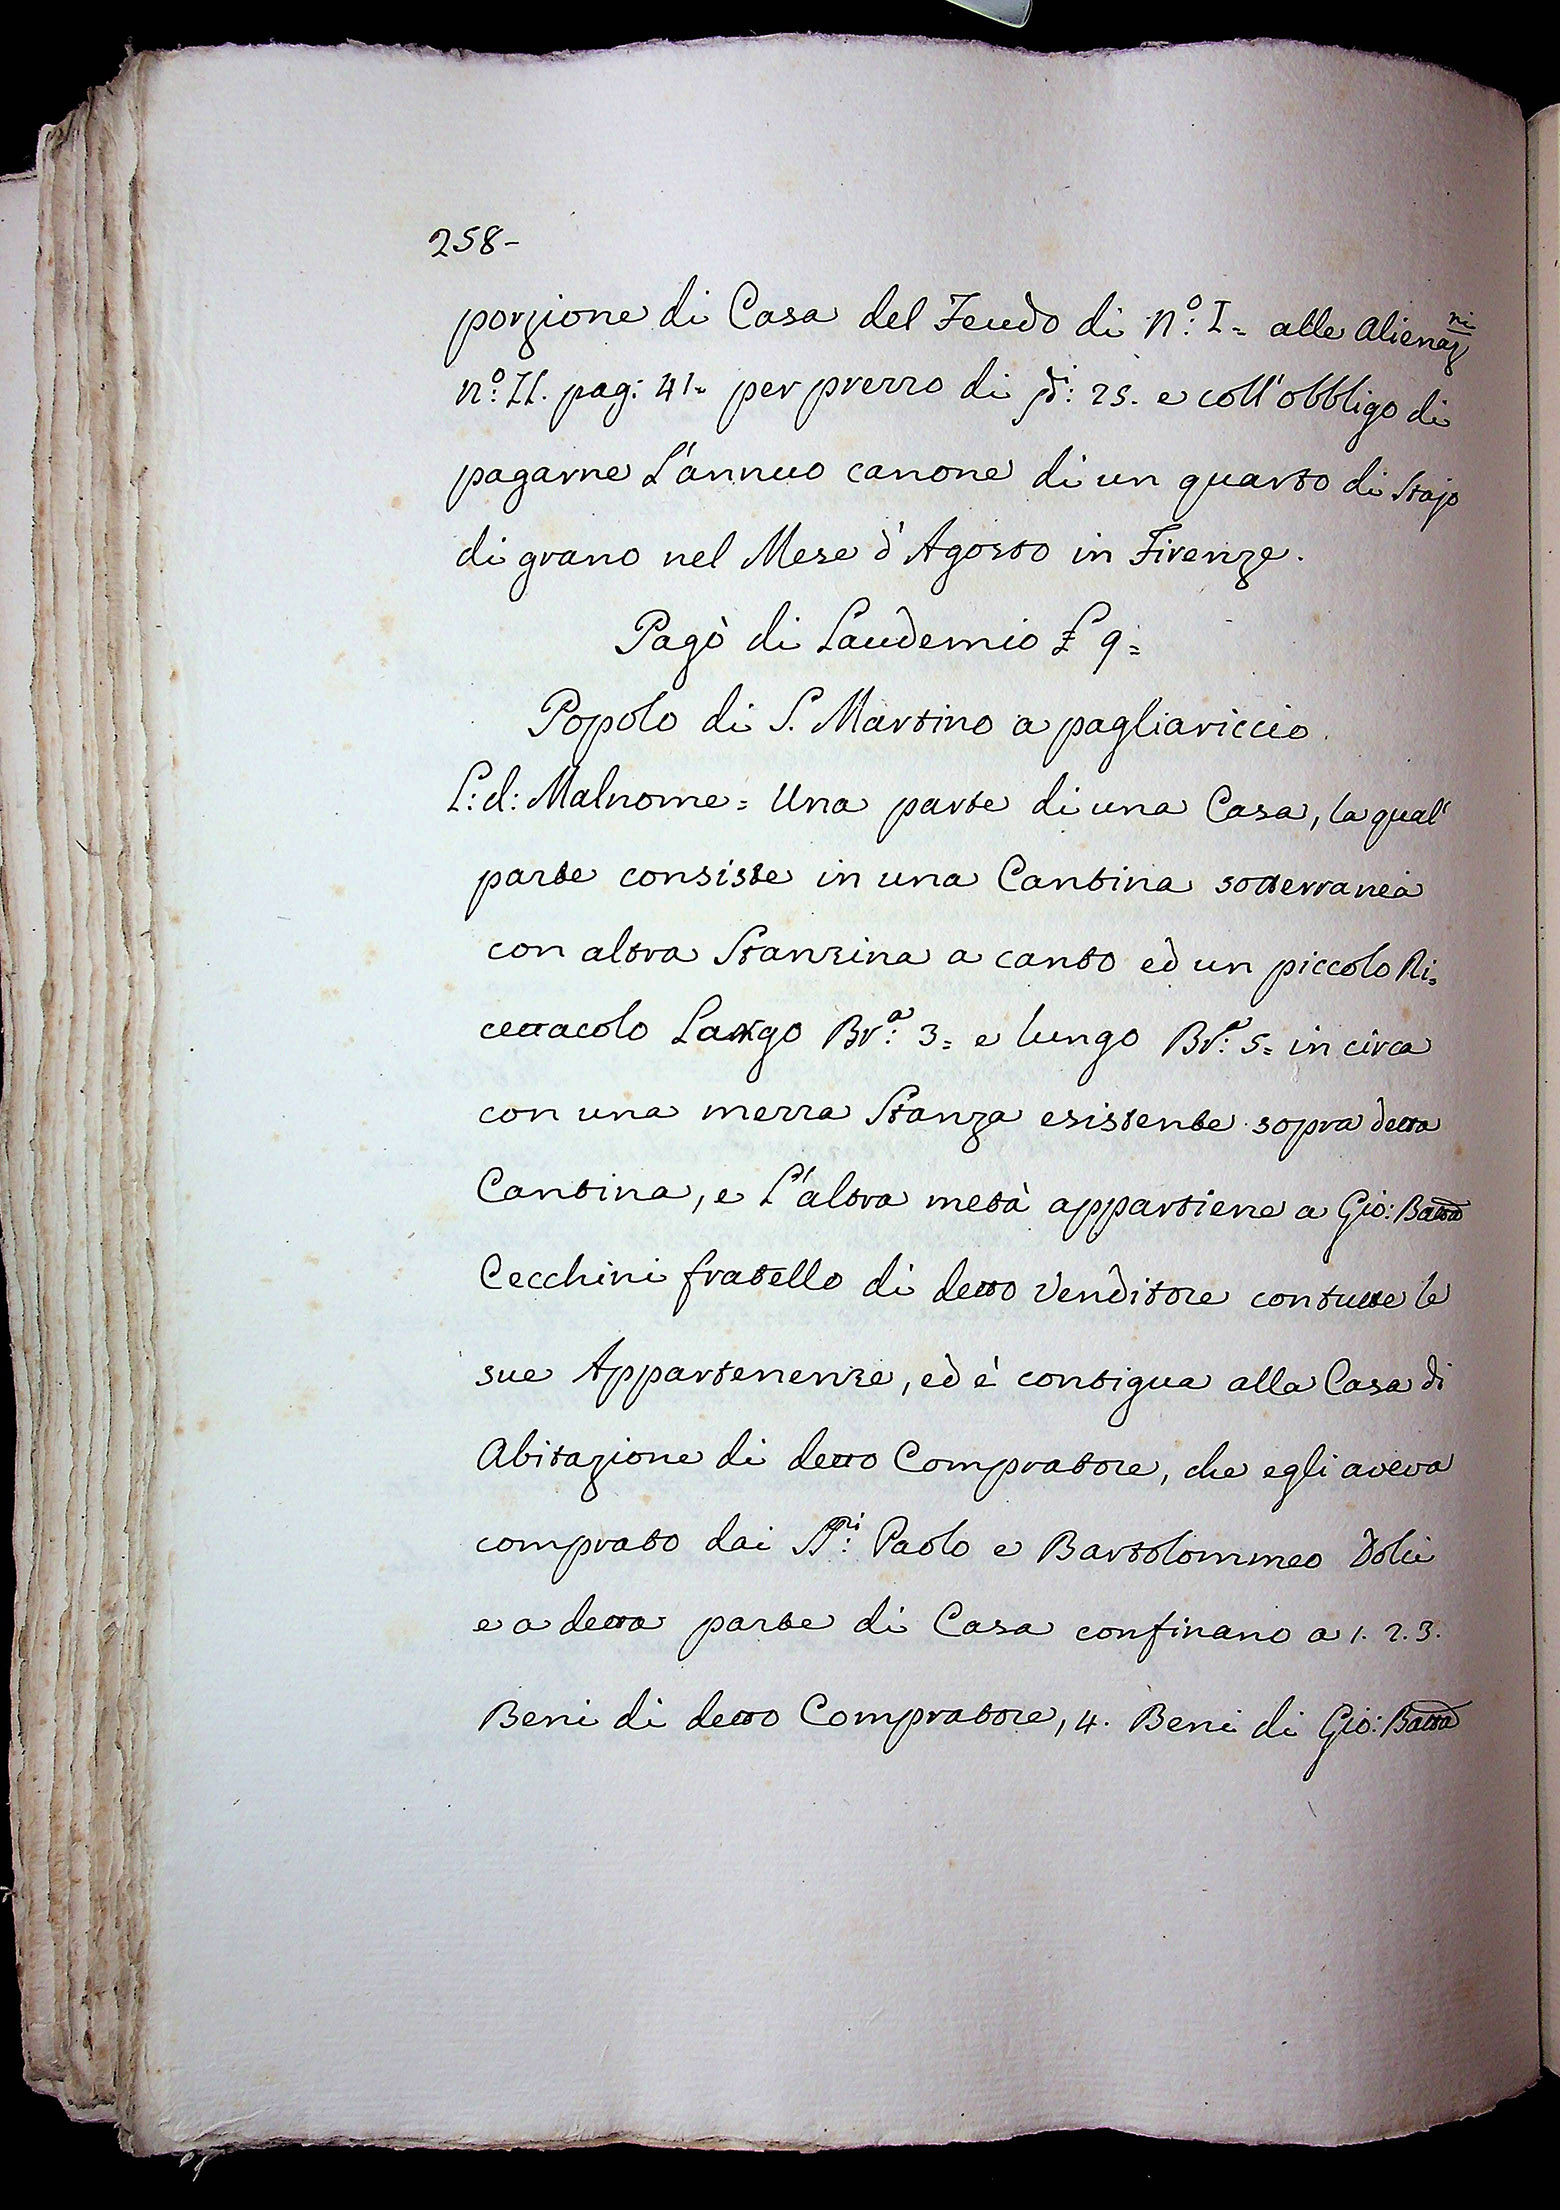 258-
porzione di Casa del Feudo di N.º I= alle Alienaz.ni
n.º II. pag: 41= per prezzo di 25. e coll'obbligo di
pagarne L'annuo canone di un quarto di Stajo
di grano nel Mese d'Agosto in Firenze.
Pagò di Laudemio £ 9=
Popolo di S. Martino a pagliariccio.
L: d: Malnome= Una parte di una Casa, la qual'
parte consiste in una Cantina sotterranea
con altra Stanzina a canto ed un piccolo Ri=
cettacolo Largo Br.ª: 3= e lungo Br.ª: 5= in circa
con una mezza Stanza esistente sopra detta
Cantina, e L'altra metà appartiene a Gio: Batta
Cecchini fratello di detto Venditore con tutte le
sue Appartenenze, ed è contigua alla Casa di
Abitazione di detto Compratore, che egli aveva
comprato dai SS.ri: Paolo e Bartolommeo Dolci
e a detta parte di Casa confinano a 1. 2. 3.
Beni di detto Compratore, 4. Beni di Gio: Batta